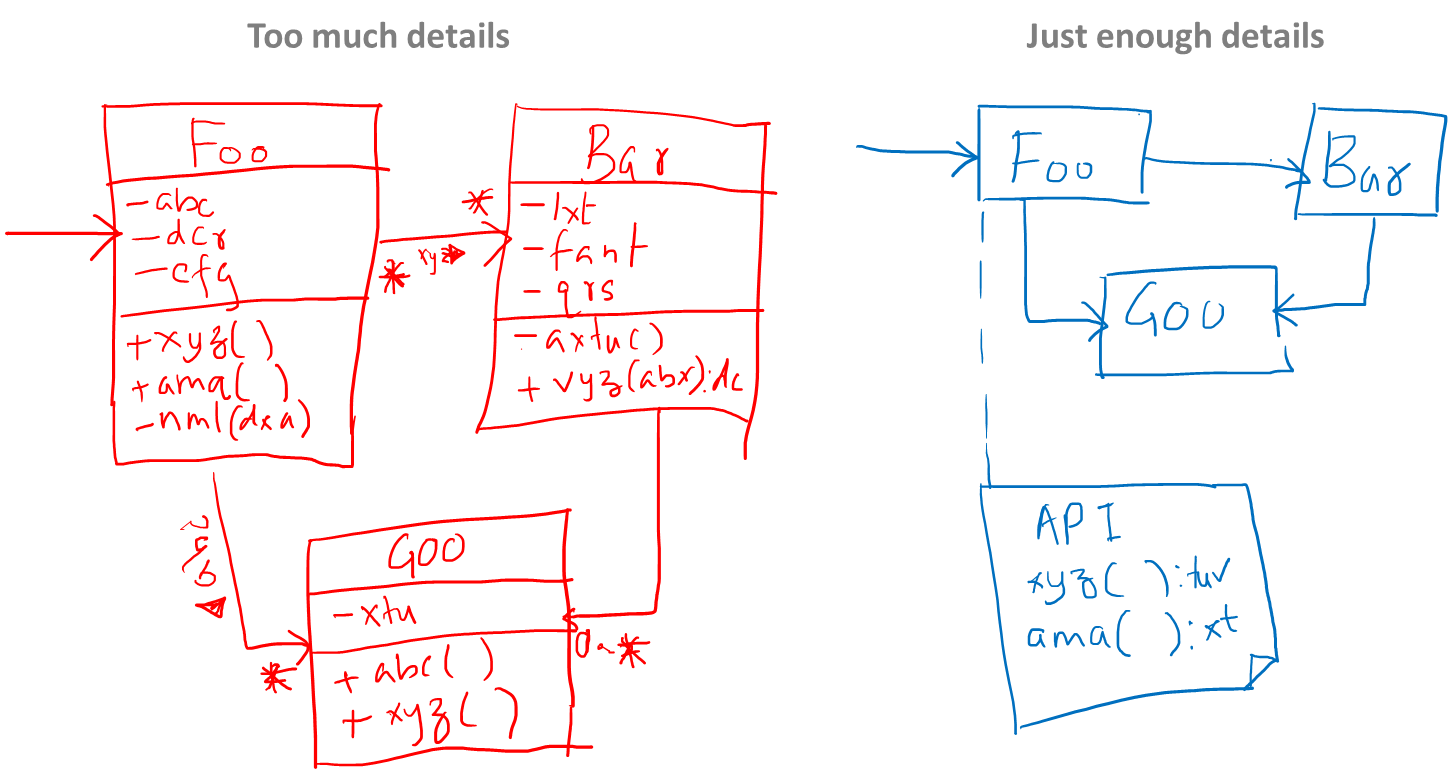 Too much details
Foo
-abc
-dcr
-cfg
+xyz( )
+ama( )
-nml(dxa)
*
*
Bar
-lxt
-fant
-qrs
-axtu()
+vyz(abx):dc
*
Goo
-xtu
+abc( )
+xyz( )
*
Just enough details
Foo
Bar
Goo
API
xyz( ):tuv
ama( ):xt